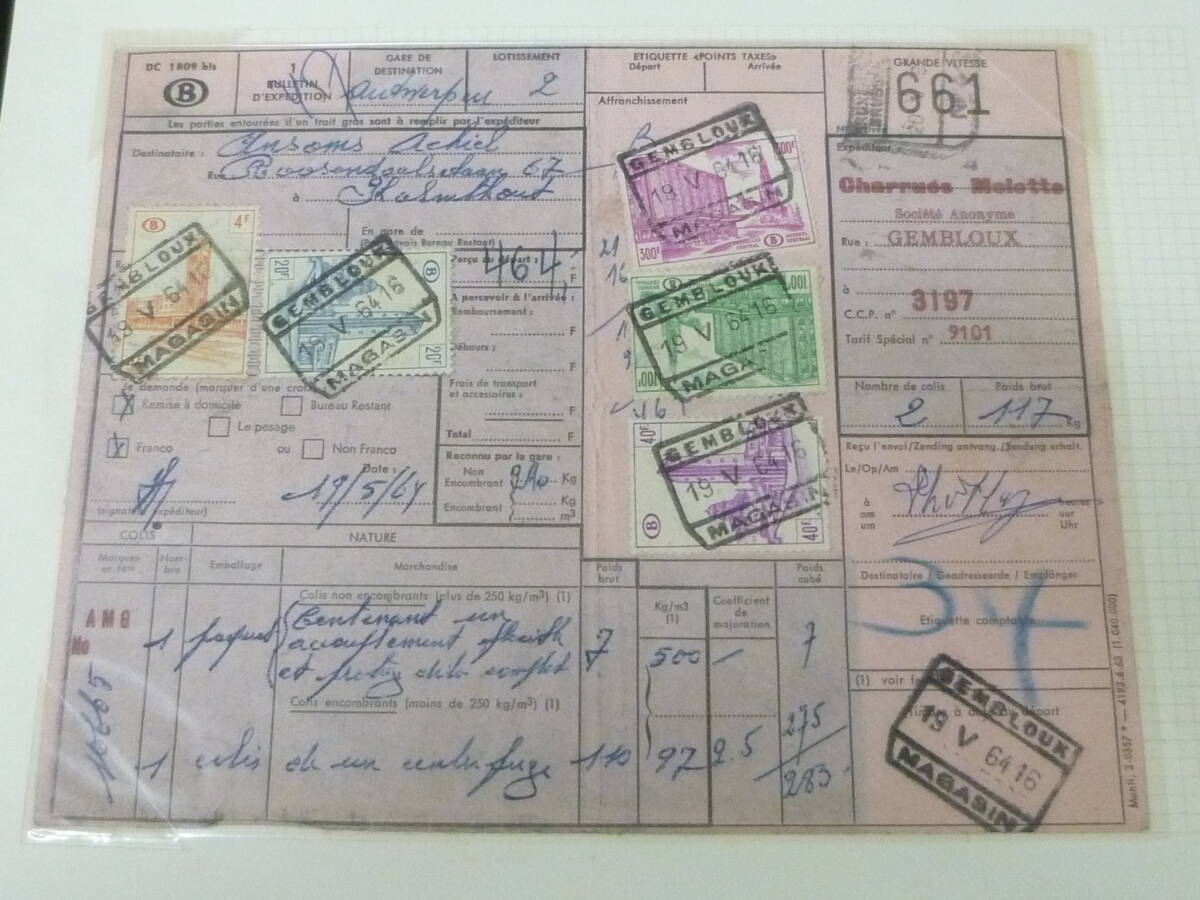 DC 1809 bis
B
1
BULLETIN
D'EXPEDITION
GARE DE
DESTINATION
Antwerpen
LOTISSEMENT
2
ETIQUETTE «POINTS TAXES»
Départ
Arrivée
GRANDE VITESSE
661
Les parties entourées d'un trait gras sont à remplir par l'expéditeur
Affranchissement
Destinataire : Ansoms Achiel
Rue Roosendaalsebaan 67
à Kalmthout
En gare de
(Bureau Restant)
Expéditeur
Charrues Melotte
Société Anonyme
Rue : GEMBLOUX
à
C.C.P. n° 3197
Tarif Spécial n° 9101
4F
B
GEMBLOUX
19 V 64 16
MAGASIN
20F
B
20F
GEMBLOUX
19 V 64 16
MAGASIN
300F
300F
B
GEMBLOUX
19 V 64 16
MAGASIN
100F
100F
GEMBLOUX
19 V 64 16
MAGASIN
40F
40F
B
GEMBLOUX
19 V 64 16
MAGASIN
21
16
16
Perçu au départ :
464
F
A percevoir à l'arrivée :
Remboursement :
F
Débours :
F
Frais de transport
et accessoires :
F
Total
F
Je demande (marquer d'une croix)
X Remise à domicile
Bureau Restant
Le pesage
X Franco
ou
Non Franco
Date :
19/5/64
(signature expéditeur)
Reconnu par la gare :
Non
Encombrant
Kg
Encombrant
Kg
m³
Nombre de colis
2
Poids brut
117 Kg
Reçu l'envoi/Zending ontvang./Sendung erhalt.
Le/Op/Am
à
am
um
heures
uur
Uhr
Destinataire / Geadresseerde / Emplänger
Etiquette comptable
COLIS
NATURE
Marques
et Nos
Nom-
bre
Emballage
Marchandise
Poids
brut
Kg/m3
(1)
Coefficient
de
majoration
Poids
cubé
Colis non encombrants (plus de 250 kg/m³) (1)
AMG
No
10665
1
paquet
Contenant un
accouplement
et complet
7
500
—
7
Colis encombrants (moins de 250 kg/m³) (1)
1
colis
de un centrifuge
110
97
2.5
275
283
(1) voir
Timbre à date du départ
GEMBLOUX
19 V 64 16
MAGASIN
3.0357 * — 4193.6.63 (1.040.000)